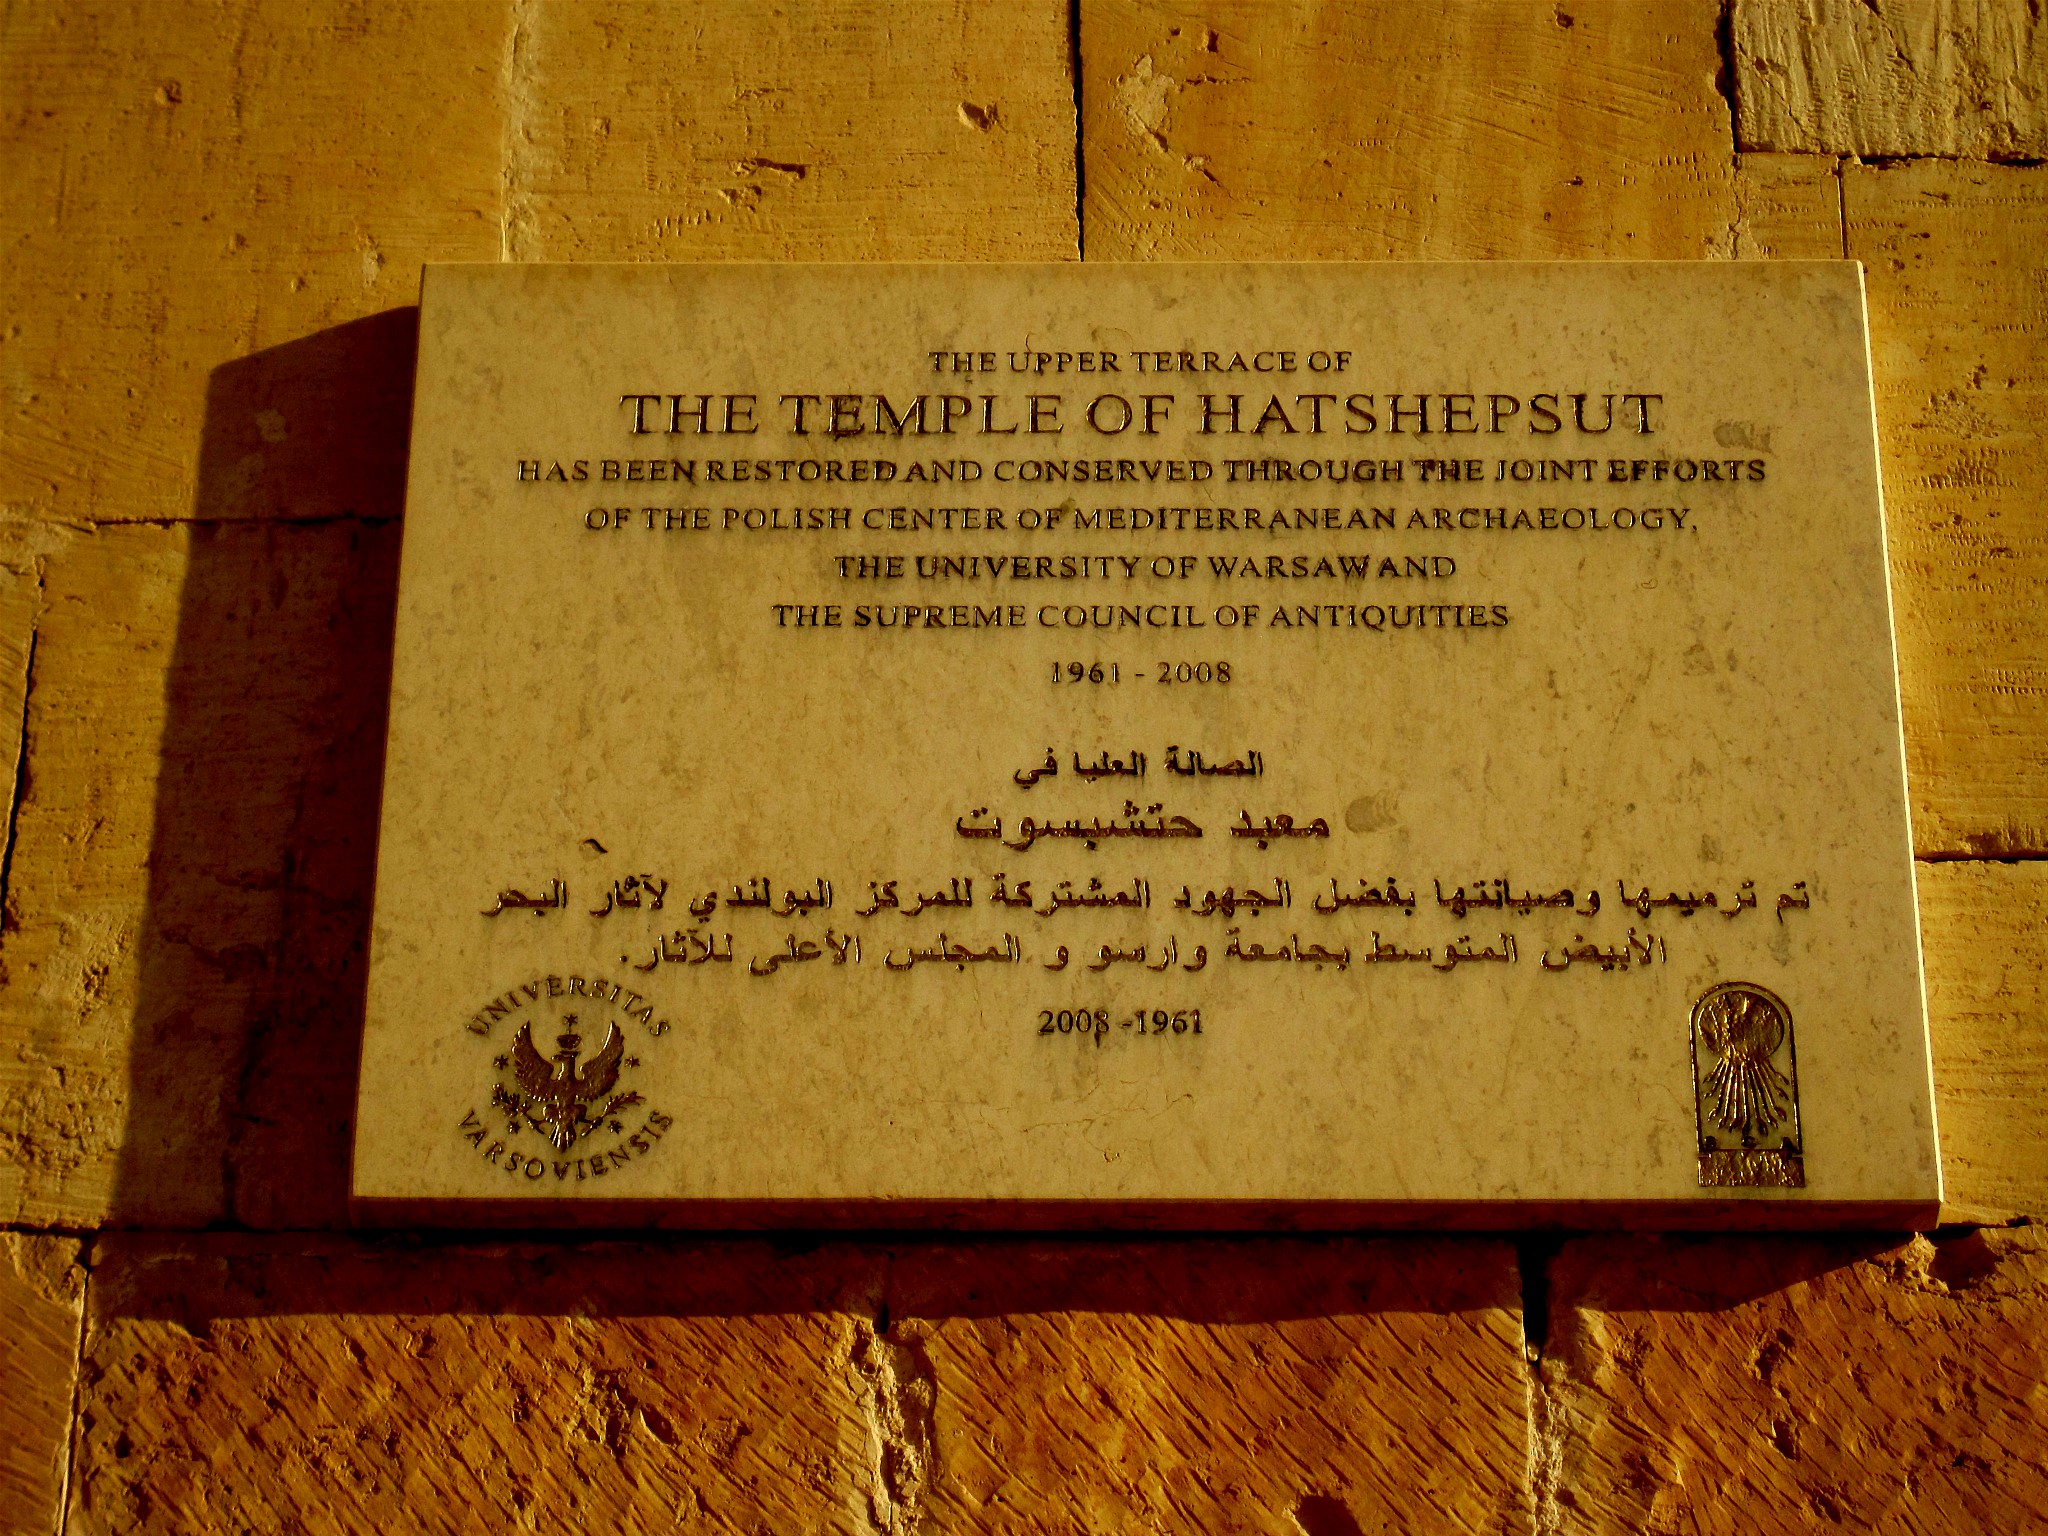 THE UPPER TERRACE OF
THE TEMPLE OF HATSHEPSUT
HAS BEEN RESTORED AND CONSERVED THROUGH THE JOINT EFFORTS
OF THE POLISH CENTER OF MEDITERRANEAN ARCHAEOLOGY,
THE UNIVERSITY OF WARSAW AND
THE SUPREME COUNCIL OF ANTIQUITIES
1961 - 2008
الصالة العليا في
معبد حتشبسوت
تم ترميمها وصيانتها بفضل الجهود المشتركة للمركز البولندي لآثار البحر
الأبيض المتوسط بجامعة وارسو و المجلس الأعلى للآثار.
2008 -1961
UNIVERSITAS
VARSOVIENSIS